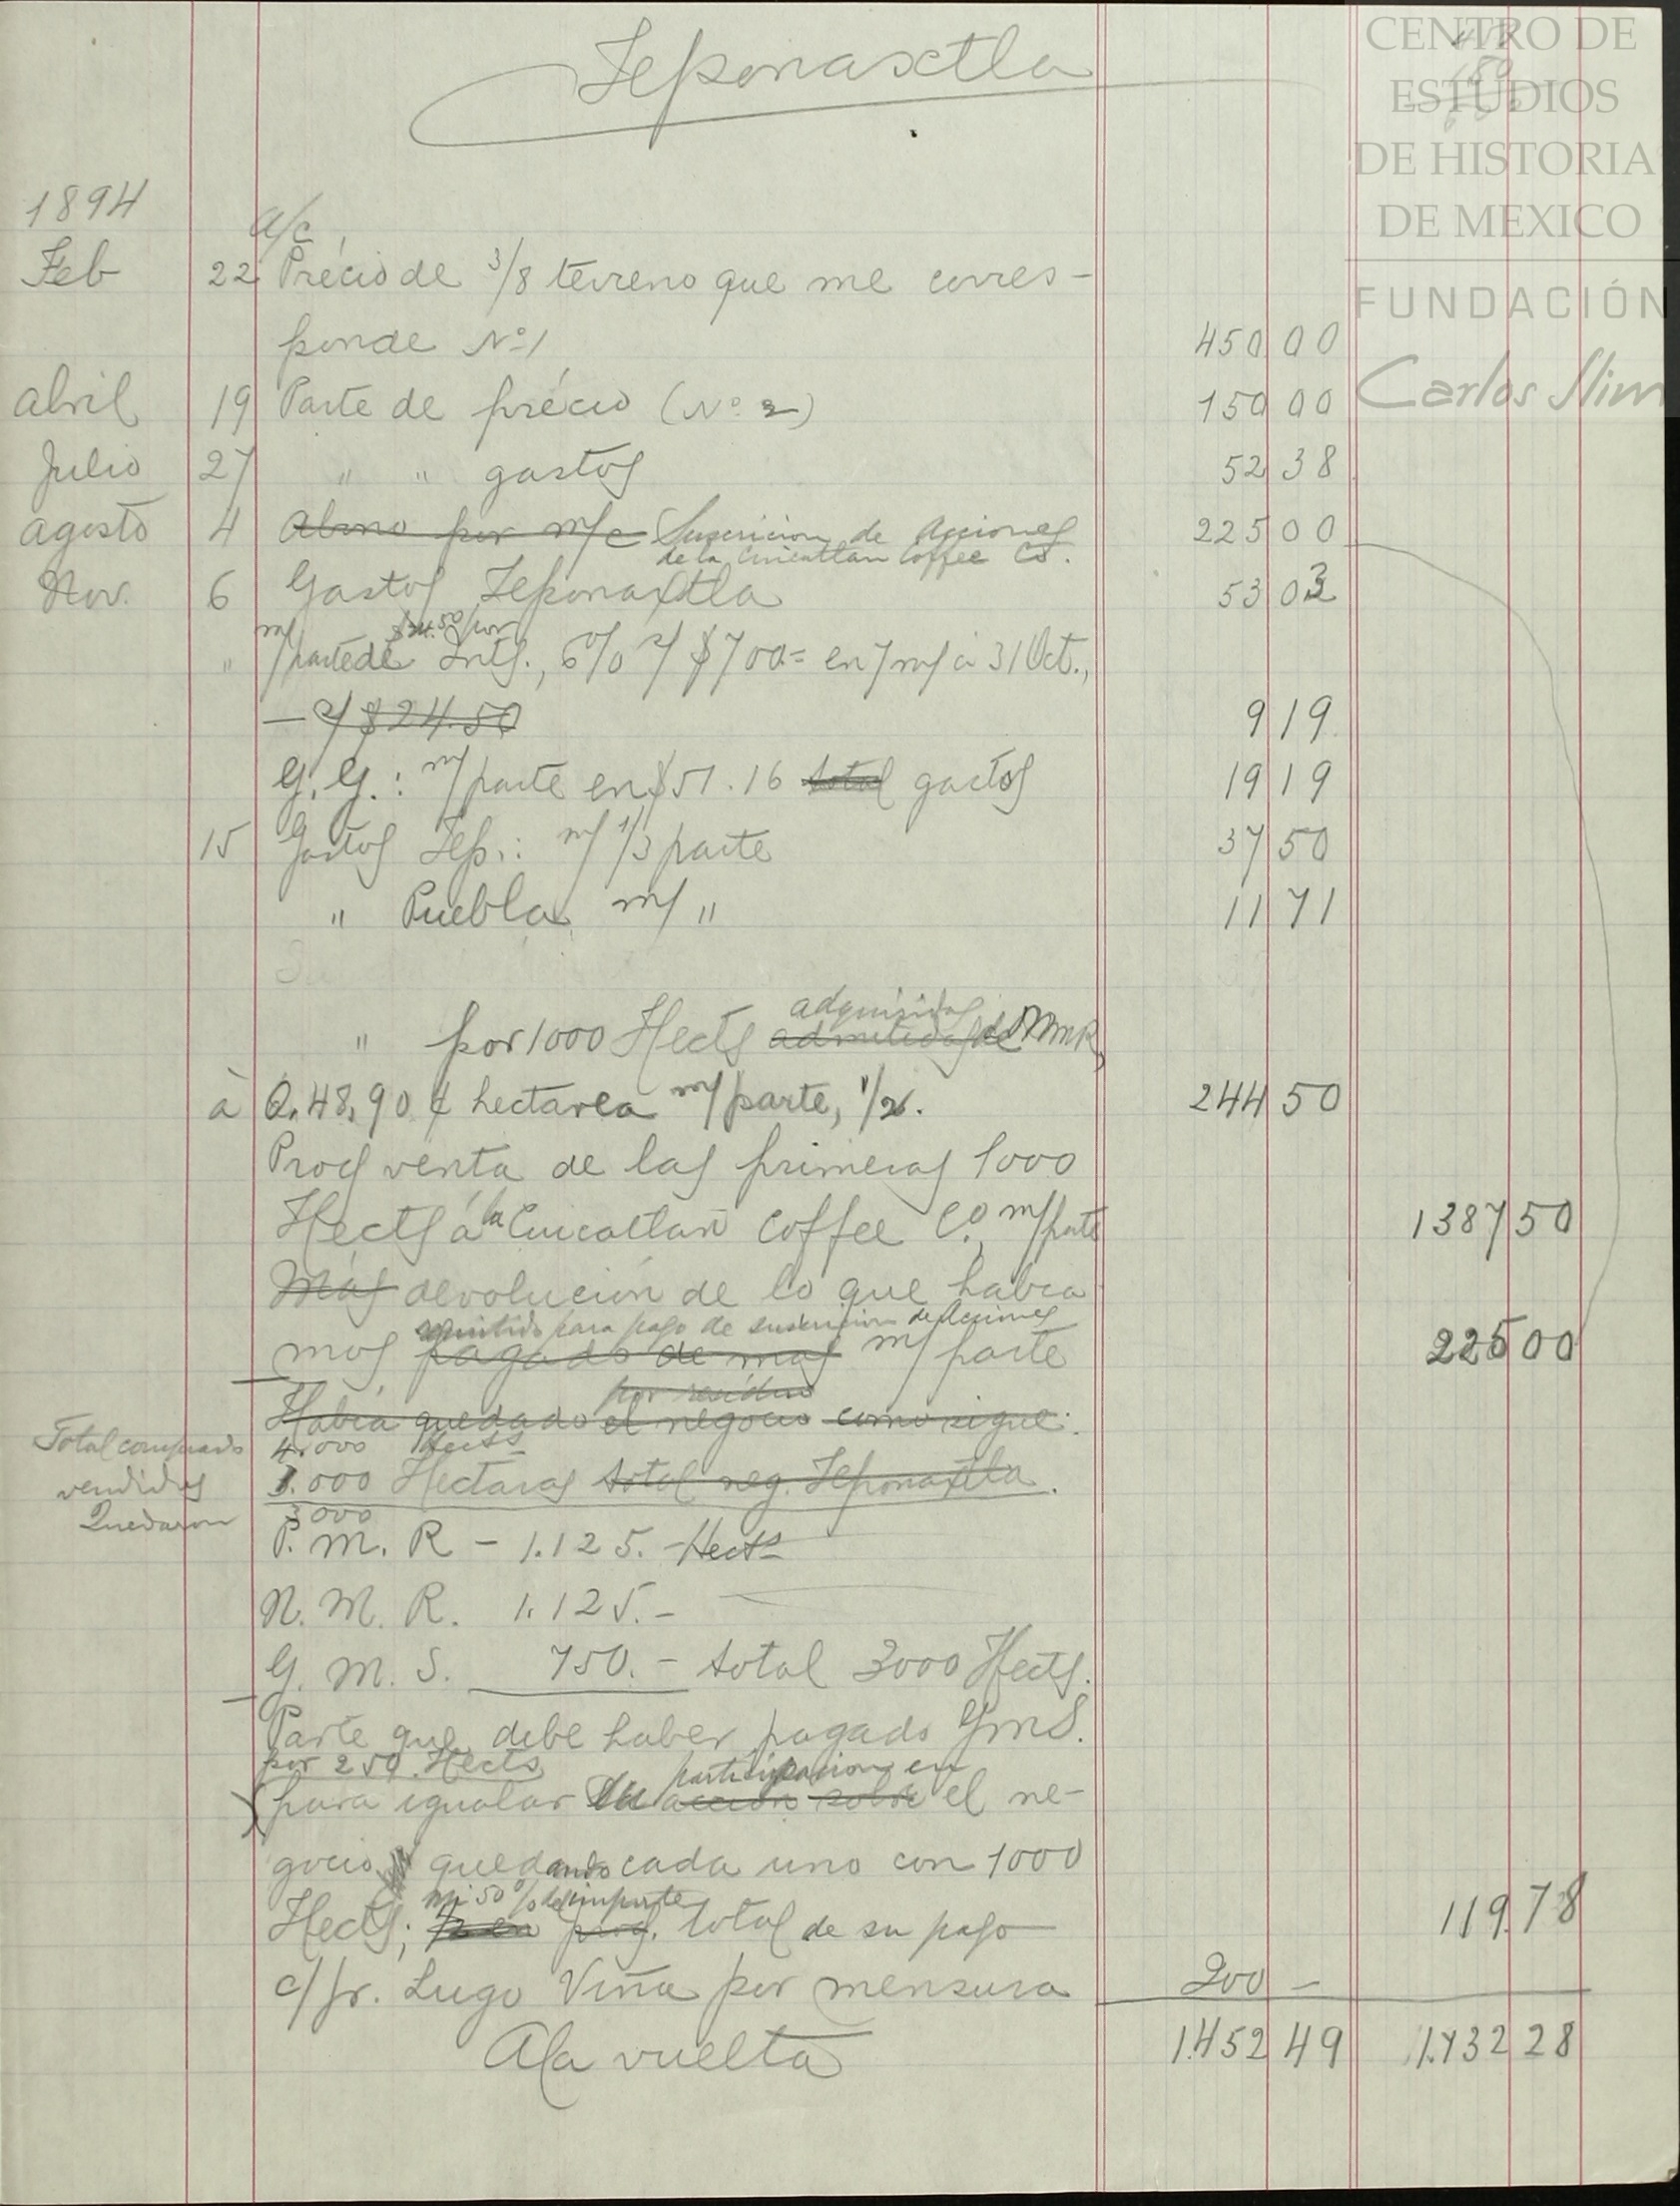 Teponaxtla
CENTRO DE
ESTUDIOS
DE HISTORIA
DE MEXICO
FUNDACIÓN
Carlos Slim
1894
a/c
Feb 22 Précio de 3/8 terreno que me corres-
ponde Nº 1 450 00
Abril 19 Parte de précio (Nº 2) 150 00
Julio 27 " " gastos 52 38
Agosto 4 Abono por m/c Suscricion de Acciones 225 00
de la Cuicatlan Coffee Co.
Nov. 6 Gastos Teponaxtla 53 02
$24.50 por
" m/parte de Ints., 6% s/ $700= en 7 m/ à 31 Oct.,
— s/ $24.50 9 19
G. G.: m/parte en $51.16 total gastos 19 19
15 Gastos Tep.: m/ 1/3 parte 37 50
" Puebla m/ " 11 71
adquiridas
" por 1000 Hects admitidas de NMR,
à 0.48,90 ¢ hectarea m/parte, 1/2. 244 50
Procs venta de las primeras 1000
Hects á la Cuicatlan Coffee Co., m/parte 1387 50
Más devolución de lo que habia
remitido para pago de suscricion de Acciones
mos pagado de mas m/ parte 225 00
por residuo
Habia quedado el negocio como sigue:
Total comprado 4.000 Hects
vendidas 1.000 Hectaras total neg. Teponaxtla.
Quedaron 3000
P. M. R - 1.125. - Hects
N. M. R. 1.125. -
G. M. S. 750. - total 3000 Hects.
Parte que debe haber pagado GMS.
por 250 Hects
participacion en
para igualar su accion sobre el ne-
gocio quedando cada uno con 1000
mi 50% del importe
Hects; total de su pago 119.78
c/ fr. Lugo Viña por mensura 200 —
A la vuelta 1.452 49 1.732 28